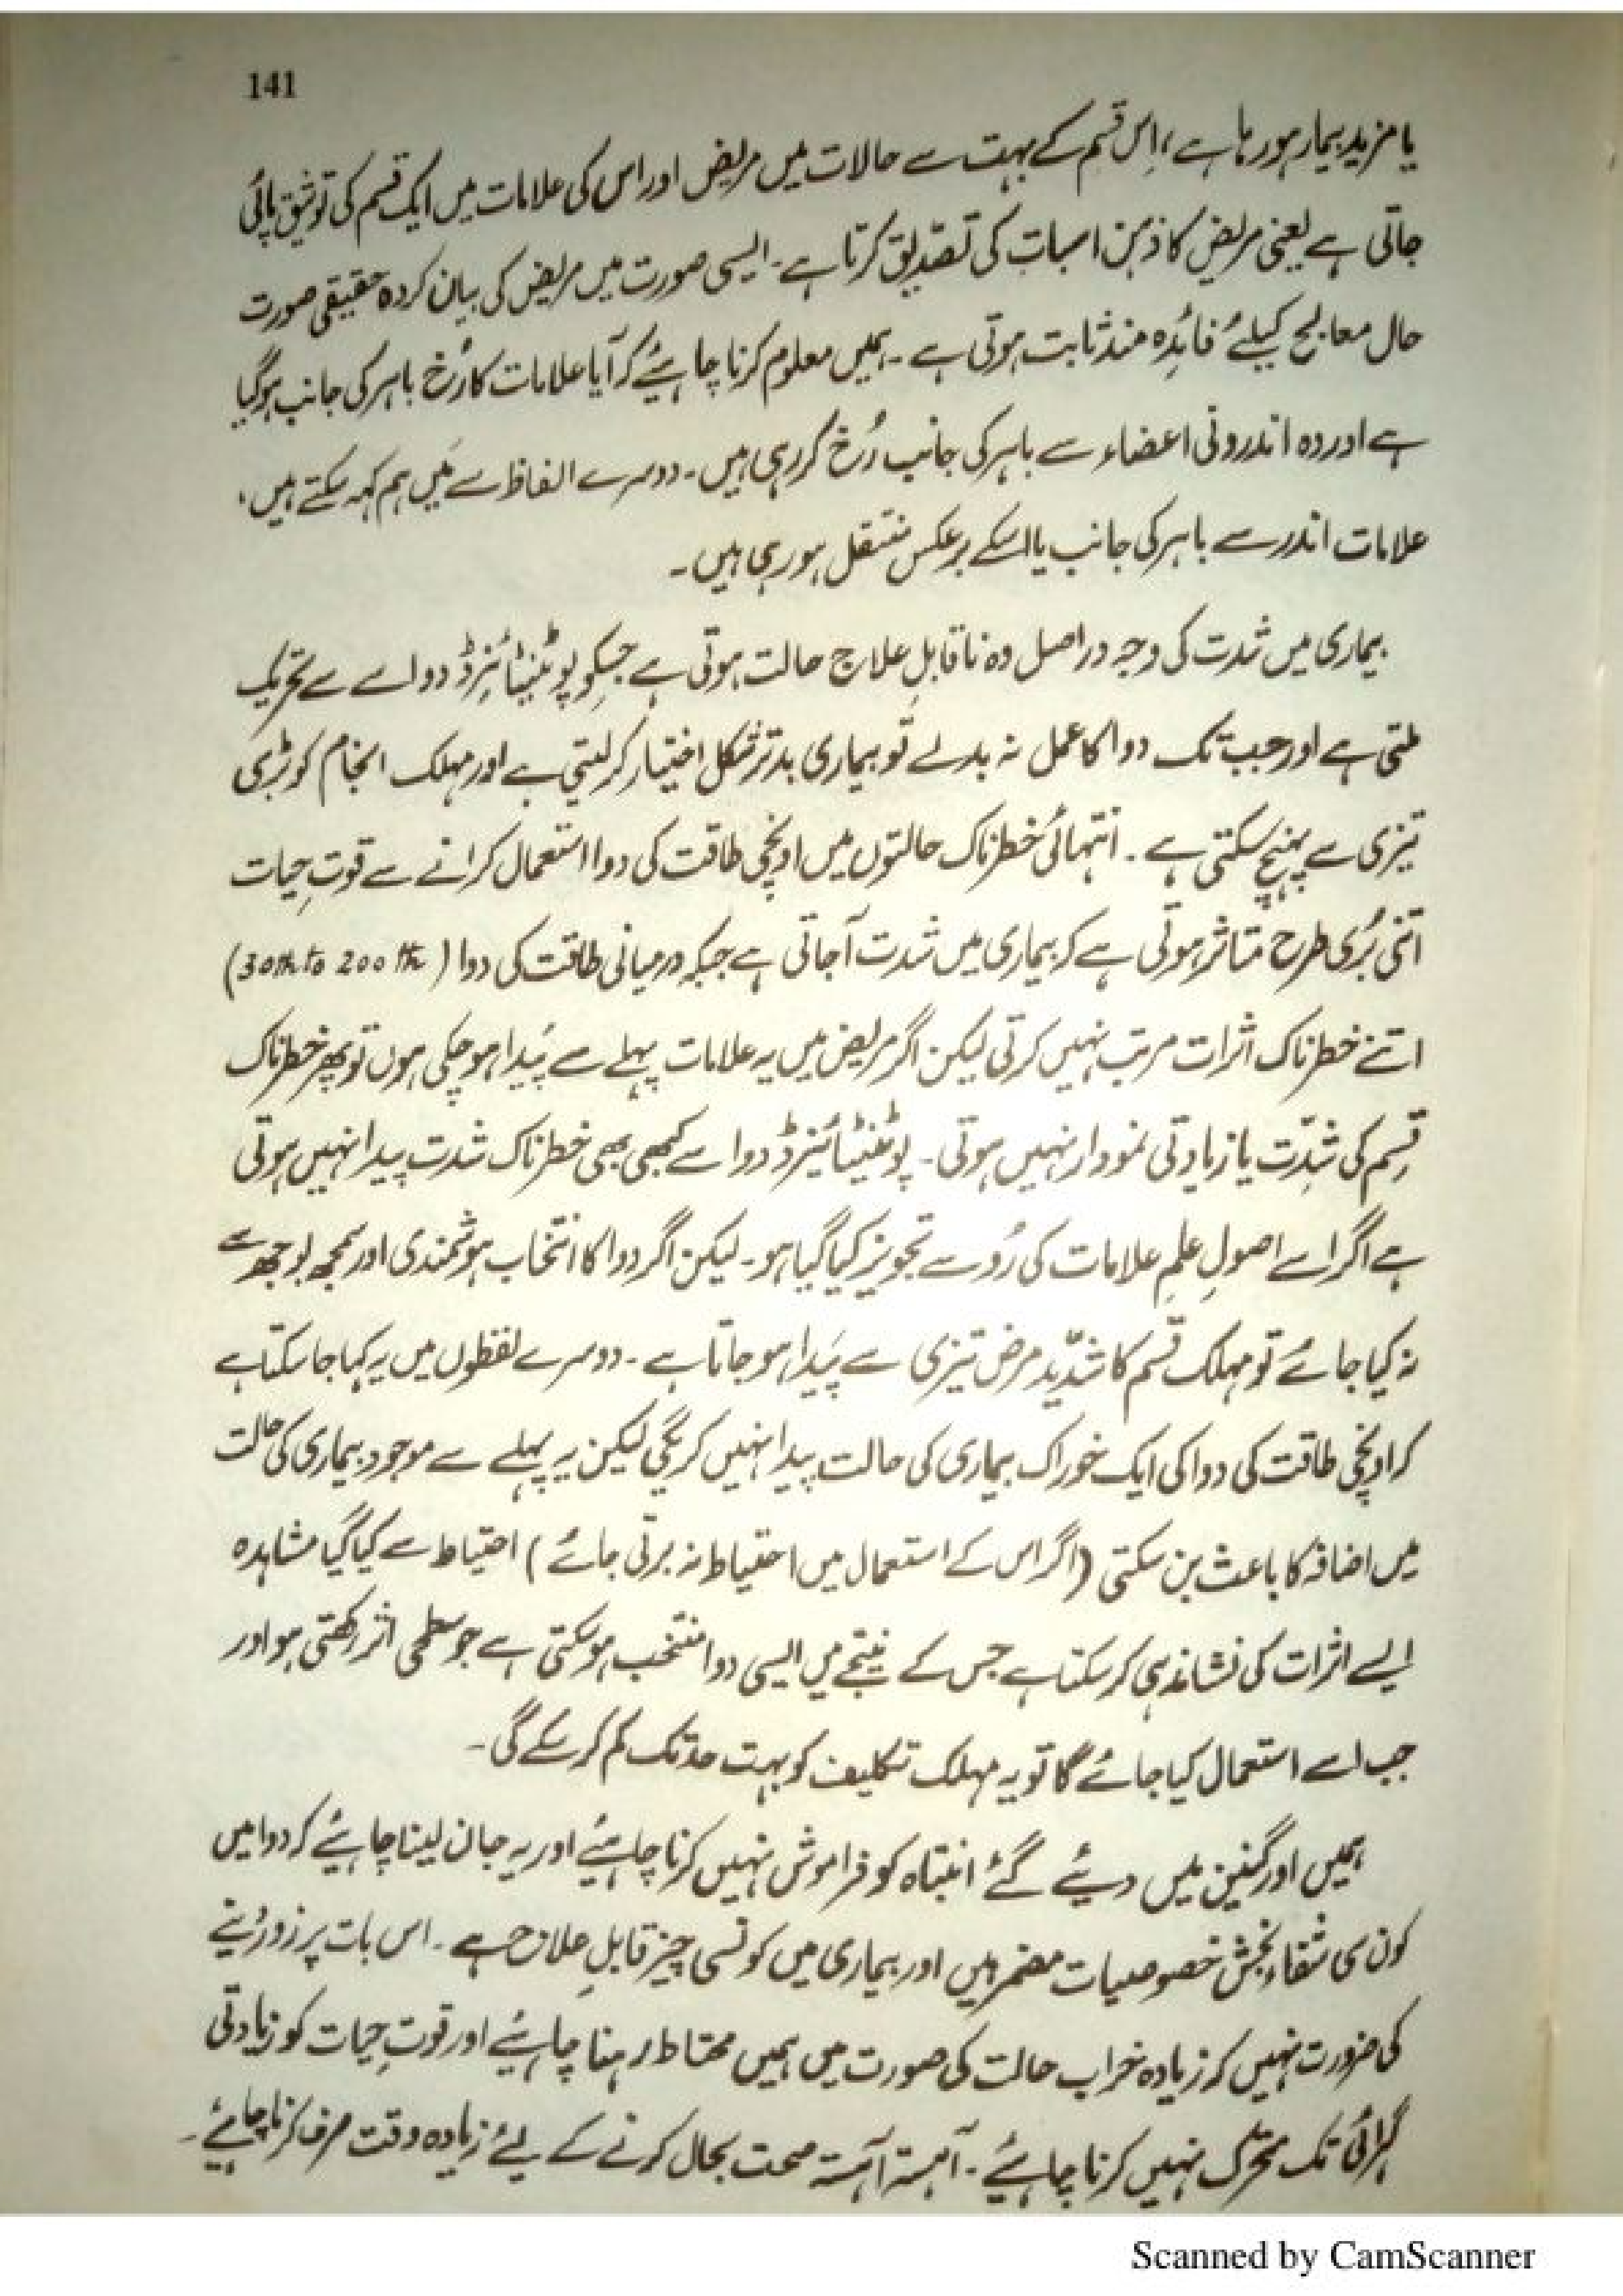 141
یا مزید بیمار ہو رہا ہے، اِس قسم کے بہت سے حالات میں مریض اور اس کی علامات میں ایک قسم کی توثیق پائی
جاتی ہے یعنی مریض کا ذہن اسبات کی تصدیق کرتا ہے۔ ایسی صورت میں مریض کی بیان کردہ حقیقی صورت
حال معالج کیلئے فائدہ مند ثابت ہوتی ہے۔ ہمیں معلوم کرنا چاہیئے کہ آیا علامات کا رُخ باہر کی جانب ہوگیا
ہے اور وہ اندرونی اعضاء سے باہر کی جانب رُخ کر رہی ہیں۔ دوسرے الفاظ سے میں ہم کہہ سکتے ہیں،
علامات اندر سے باہر کی جانب یا اسکے برعکس منتقل ہو رہی ہیں۔
بیماری میں شدت کی وجہ دراصل وہ ناقابلِ علاج حالت ہوتی ہے جسکو پوٹینٹائزڈ دوا سے تحریک
ملتی ہے اور جب تک دوا کا عمل نہ بدلے تو بیماری بدتر شکل اختیار کر لیتی ہے اور مہلک انجام کو بڑی
تیزی سے پہنچ سکتی ہے۔ انتہائی خطرناک حالتوں میں اونچی طاقت کی دوا استعمال کرانے سے قوتِ حیات
اتنی بُری طرح متاثر ہوتی ہے کہ بیماری میں شدت آجاتی ہے جبکہ درمیانی طاقت کی دوا (30th to 200th)
اتنے خطرناک اثرات مرتب نہیں کرتی لیکن اگر مریض میں یہ علامات پہلے سے پَیدا ہوچکی ہوں تو پھر خطرناک
قِسم کی شدّت یا زیادتی نمودار نہیں ہوتی۔ پوٹینٹائیزڈ دوا سے کبھی بھی خطرناک شدت پیدا نہیں ہوتی
ہے اگر اسے اصولِ علمِ علامات کی رُو سے تجویز کیا گیا ہو۔ لیکن اگر دوا کا انتخاب ہوشمندی اور سمجھ بوجھ سے
نہ کیا جائے تو مہلک قسم کا شدّید مرض تیزی سے پَیدا ہو جاتا ہے۔ دوسرے لفظوں میں یہ کہا جا سکتا ہے
کہ اونچی طاقت کی دوا کی ایک خوراک بیماری کی حالت پیدا نہیں کریگی لیکن یہ پہلے سے موجود بیماری کی حالت
میں اضافہ کا باعث بن سکتی (اگر اس کے استعمال میں احتیاط نہ برتی جائے) احتیاط سے کیا گیا مشاہدہ
ایسے اثرات کی نشاندہی کر سکتا ہے جس کے نتیجے میں ایسی دوا منتخب ہوسکتی ہے جو سطحی اثر رکھتی ہو اور
جب اسے استعمال کیا جائے گا تو یہ مہلک تکلیف کو بہت حد تک کم کر سکے گی۔
ہمیں اورگینن میں دیئے گئے انتباہ کو فراموش نہیں کرنا چاہیئے اور یہ جان لینا چاہیئے کہ دوا میں
کون سی شفاء بخش خصوصیات مضمر ہیں اور بیماری میں کونسی چیز قابلِ علاج ہے۔ اس بات پر زور دینے
کی ضرورت نہیں کہ زیادہ خراب حالت کی صورت میں ہمیں محتاط رہنا چاہیئے اور قوتِ حیات کو زیادتی
گہرائی تک متحرک نہیں کرنا چاہئے۔ آہستہ آہستہ صحت بحال کرنے کے لیئے زیادہ وقت صرف کرنا چاہیئے۔
Scanned by CamScanner